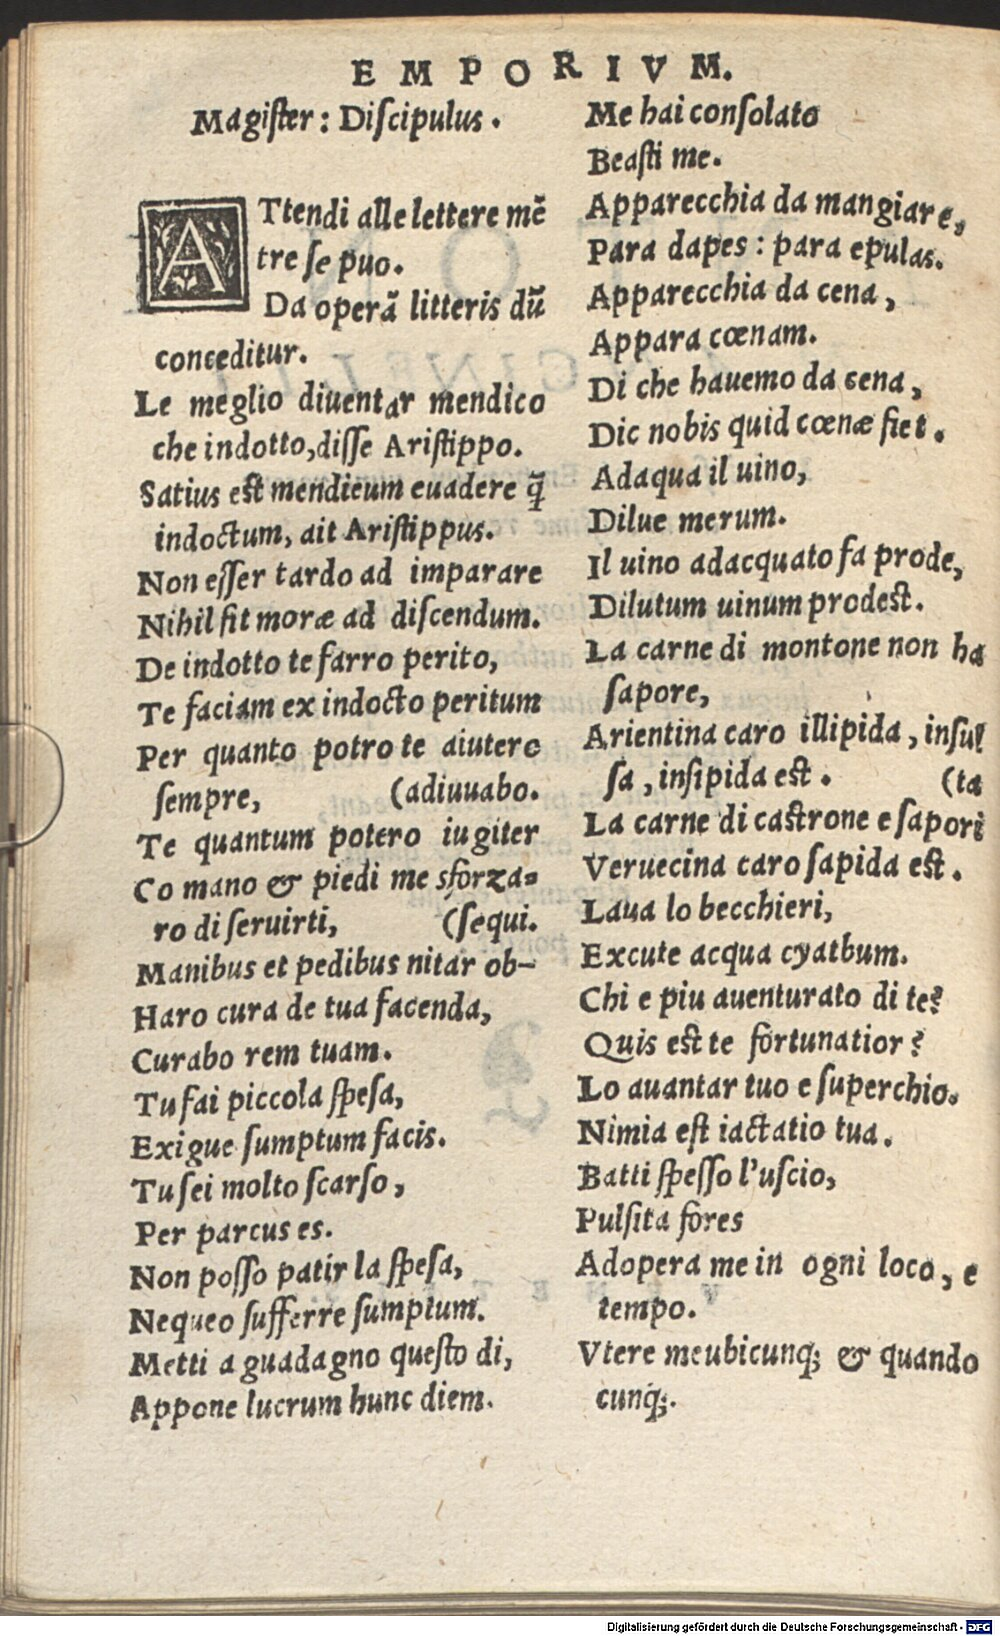 EMPORIVM.
Magiſter: Diſcipulus.
ATtendi alle lettere mē
tre ſe puo.
Da operā litteris dū
conceditur.
Le meglio diuentar mendico
che indotto, diſſe Ariſtippo.
Satius est mendicum euadere q̃
indoctum, ait Ariſtippus.
Non eſſer tardo ad imparare
Nihil fit moræ ad diſcendum.
De indotto te farro perito,
Te faciam ex indocto peritum
Per quanto potro te aiutero
ſempre, (adiuuabo.
Te quantum potero iugiter
Co mano & piedi me sforza=
ro di ſeruirti, (ſequi.
Manibus et pedibus nitar ob-
Haro cura de tua facenda,
Curabo rem tuam.
Tu fai piccola ſpeſa,
Exigue ſumptum facis.
Tu ſei molto ſcarſo,
Per parcus es.
Non poſſo patir la ſpeſa,
Nequeo sufferre ſumptum.
Metti a guadagno queſto di,
Appone lucrum hunc diem.
Me hai conſolato
Beaſti me.
Apparecchia da mangiare,
Para dapes: para epulas.
Apparecchia da cena,
Appara cœnam.
Di che hauemo da cena,
Dic nobis quid cœnæ fiet.
Adaqua il uino,
Dilue merum.
Il uino adacquato fa prode,
Dilutum uinum prodest.
La carne di montone non ha
ſapore,
Arientina caro illipida, inſul
ſa, inſipida est. (ta
La carne di castrone e ſapori
Veruecina caro ſapida est.
Laua lo becchieri,
Excute acqua cyathum.
Chi e piu auenturato di te?
Quis est te fortunatior?
Lo auantar tuo e ſuperchio.
Nimia eſt iactatio tua.
Batti ſpeſſo l'uſcio,
Pulſita fores
Adopera me in ogni loco, e
tempo.
Vtere me ubicunq; & quando
cunq;.
Digitalisierung gefördert durch die Deutsche Forschungsgemeinschaft - DFG